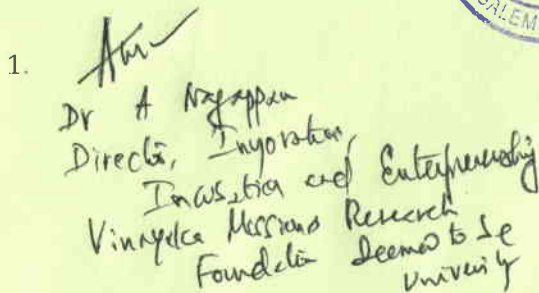 SALEM
1.
Dr A Nagappan
Director, Innovation,
Incubation and Entrepreneurship
Vinayaka Missions Research
Foundation Deemed to be
University